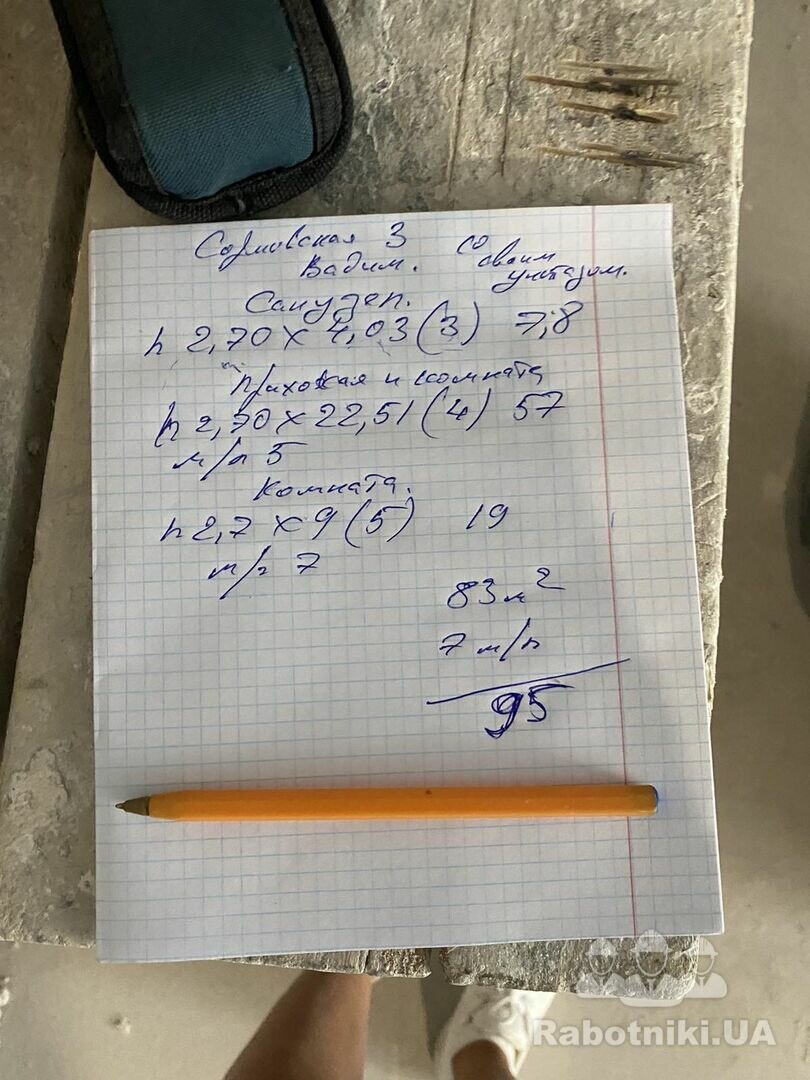 Сормовская 3
Вадим. со своим унитазом.
Санузел.
h 2,70 х 4,03 (3) 7,8
Прихожая и комната
h 2,70 х 22,51 (4) 57
м/п 5
Комната.
h 2,7 х 9 (5) 19
м/п 7
83 м²
7 м/п
95
Rabotniki.UA